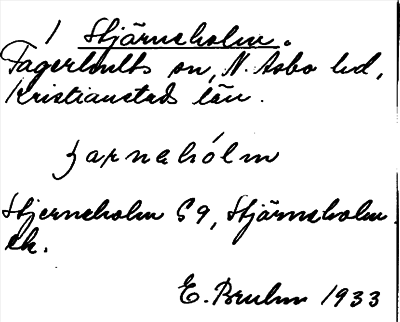 1 Stjärneholm.
Fagerhults sn, N. Åsbo hd,
Kristianstads län.
ʒarnahólm
Stjerneholm S9, Stjärneholm
ek.
E. Bruhn 1933